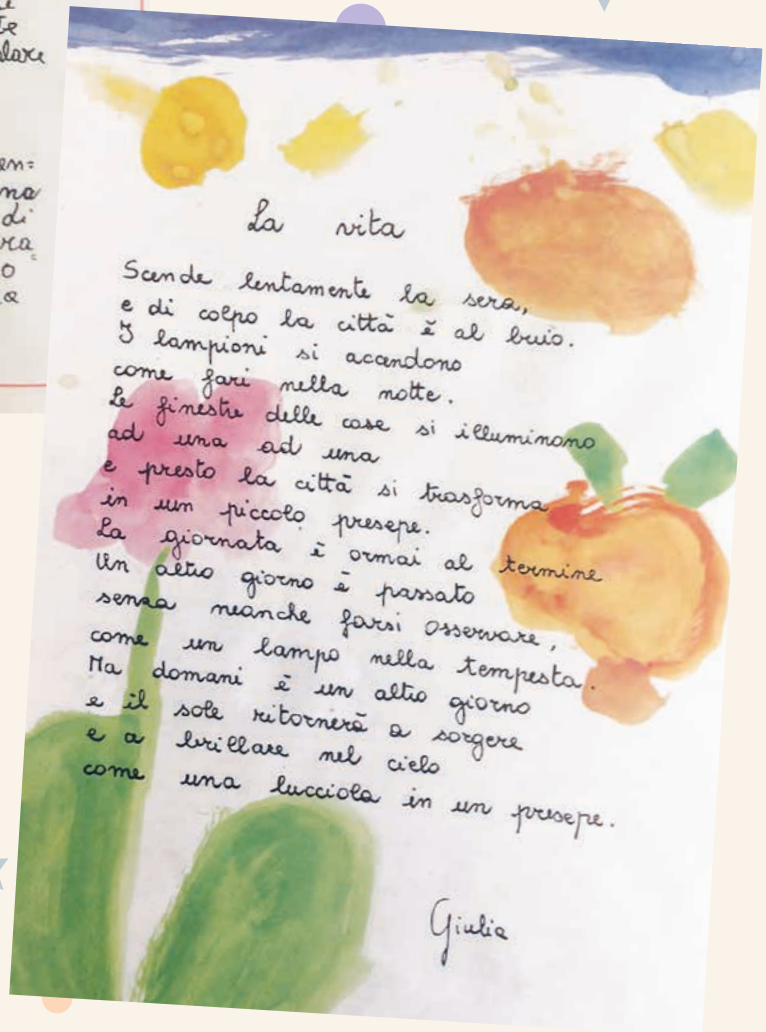 te
lare
en=
na
di
ra
o
a
La vita
Scende lentamente la sera,
e di colpo la città è al buio.
I lampioni si accendono
come fari nella notte.
Le finestre delle case si illuminano
ad una ad una
e presto la città si trasforma
in un piccolo presepe.
La giornata è ormai al termine
Un altro giorno è passato
senza neanche farsi osservare,
come un lampo nella tempesta.
Ma domani è un altro giorno
e il sole ritornerà a sorgere
e a brillare nel cielo
come una lucciola in un presepe.
Giulia